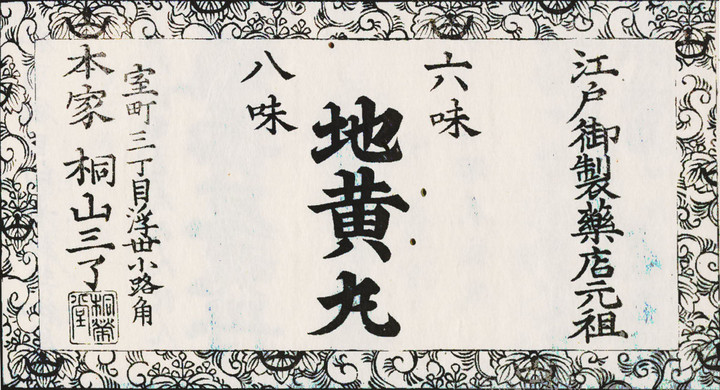 江戸御製藥店元祖
六味
地黄丸
八味
室町三丁目浮世小路角
本家 桐山三了